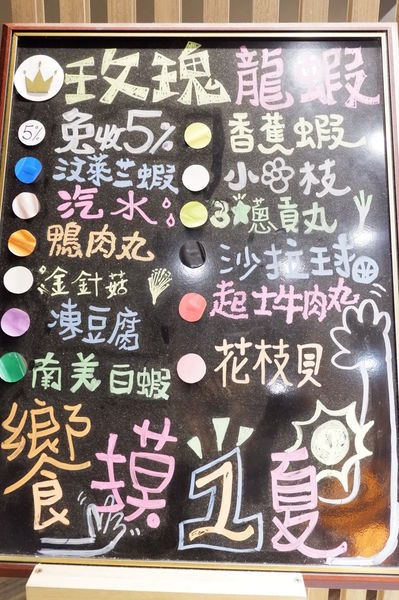 玫瑰龍蝦
5%
免收5%
汶萊兰蝦
汽水
鴨肉丸
金針菇
凍豆腐
南美白蝦
香蕉蝦
小❀枝
3★蔥貢丸
沙拉球
起士牛肉丸
花枝貝
饗摸1夏